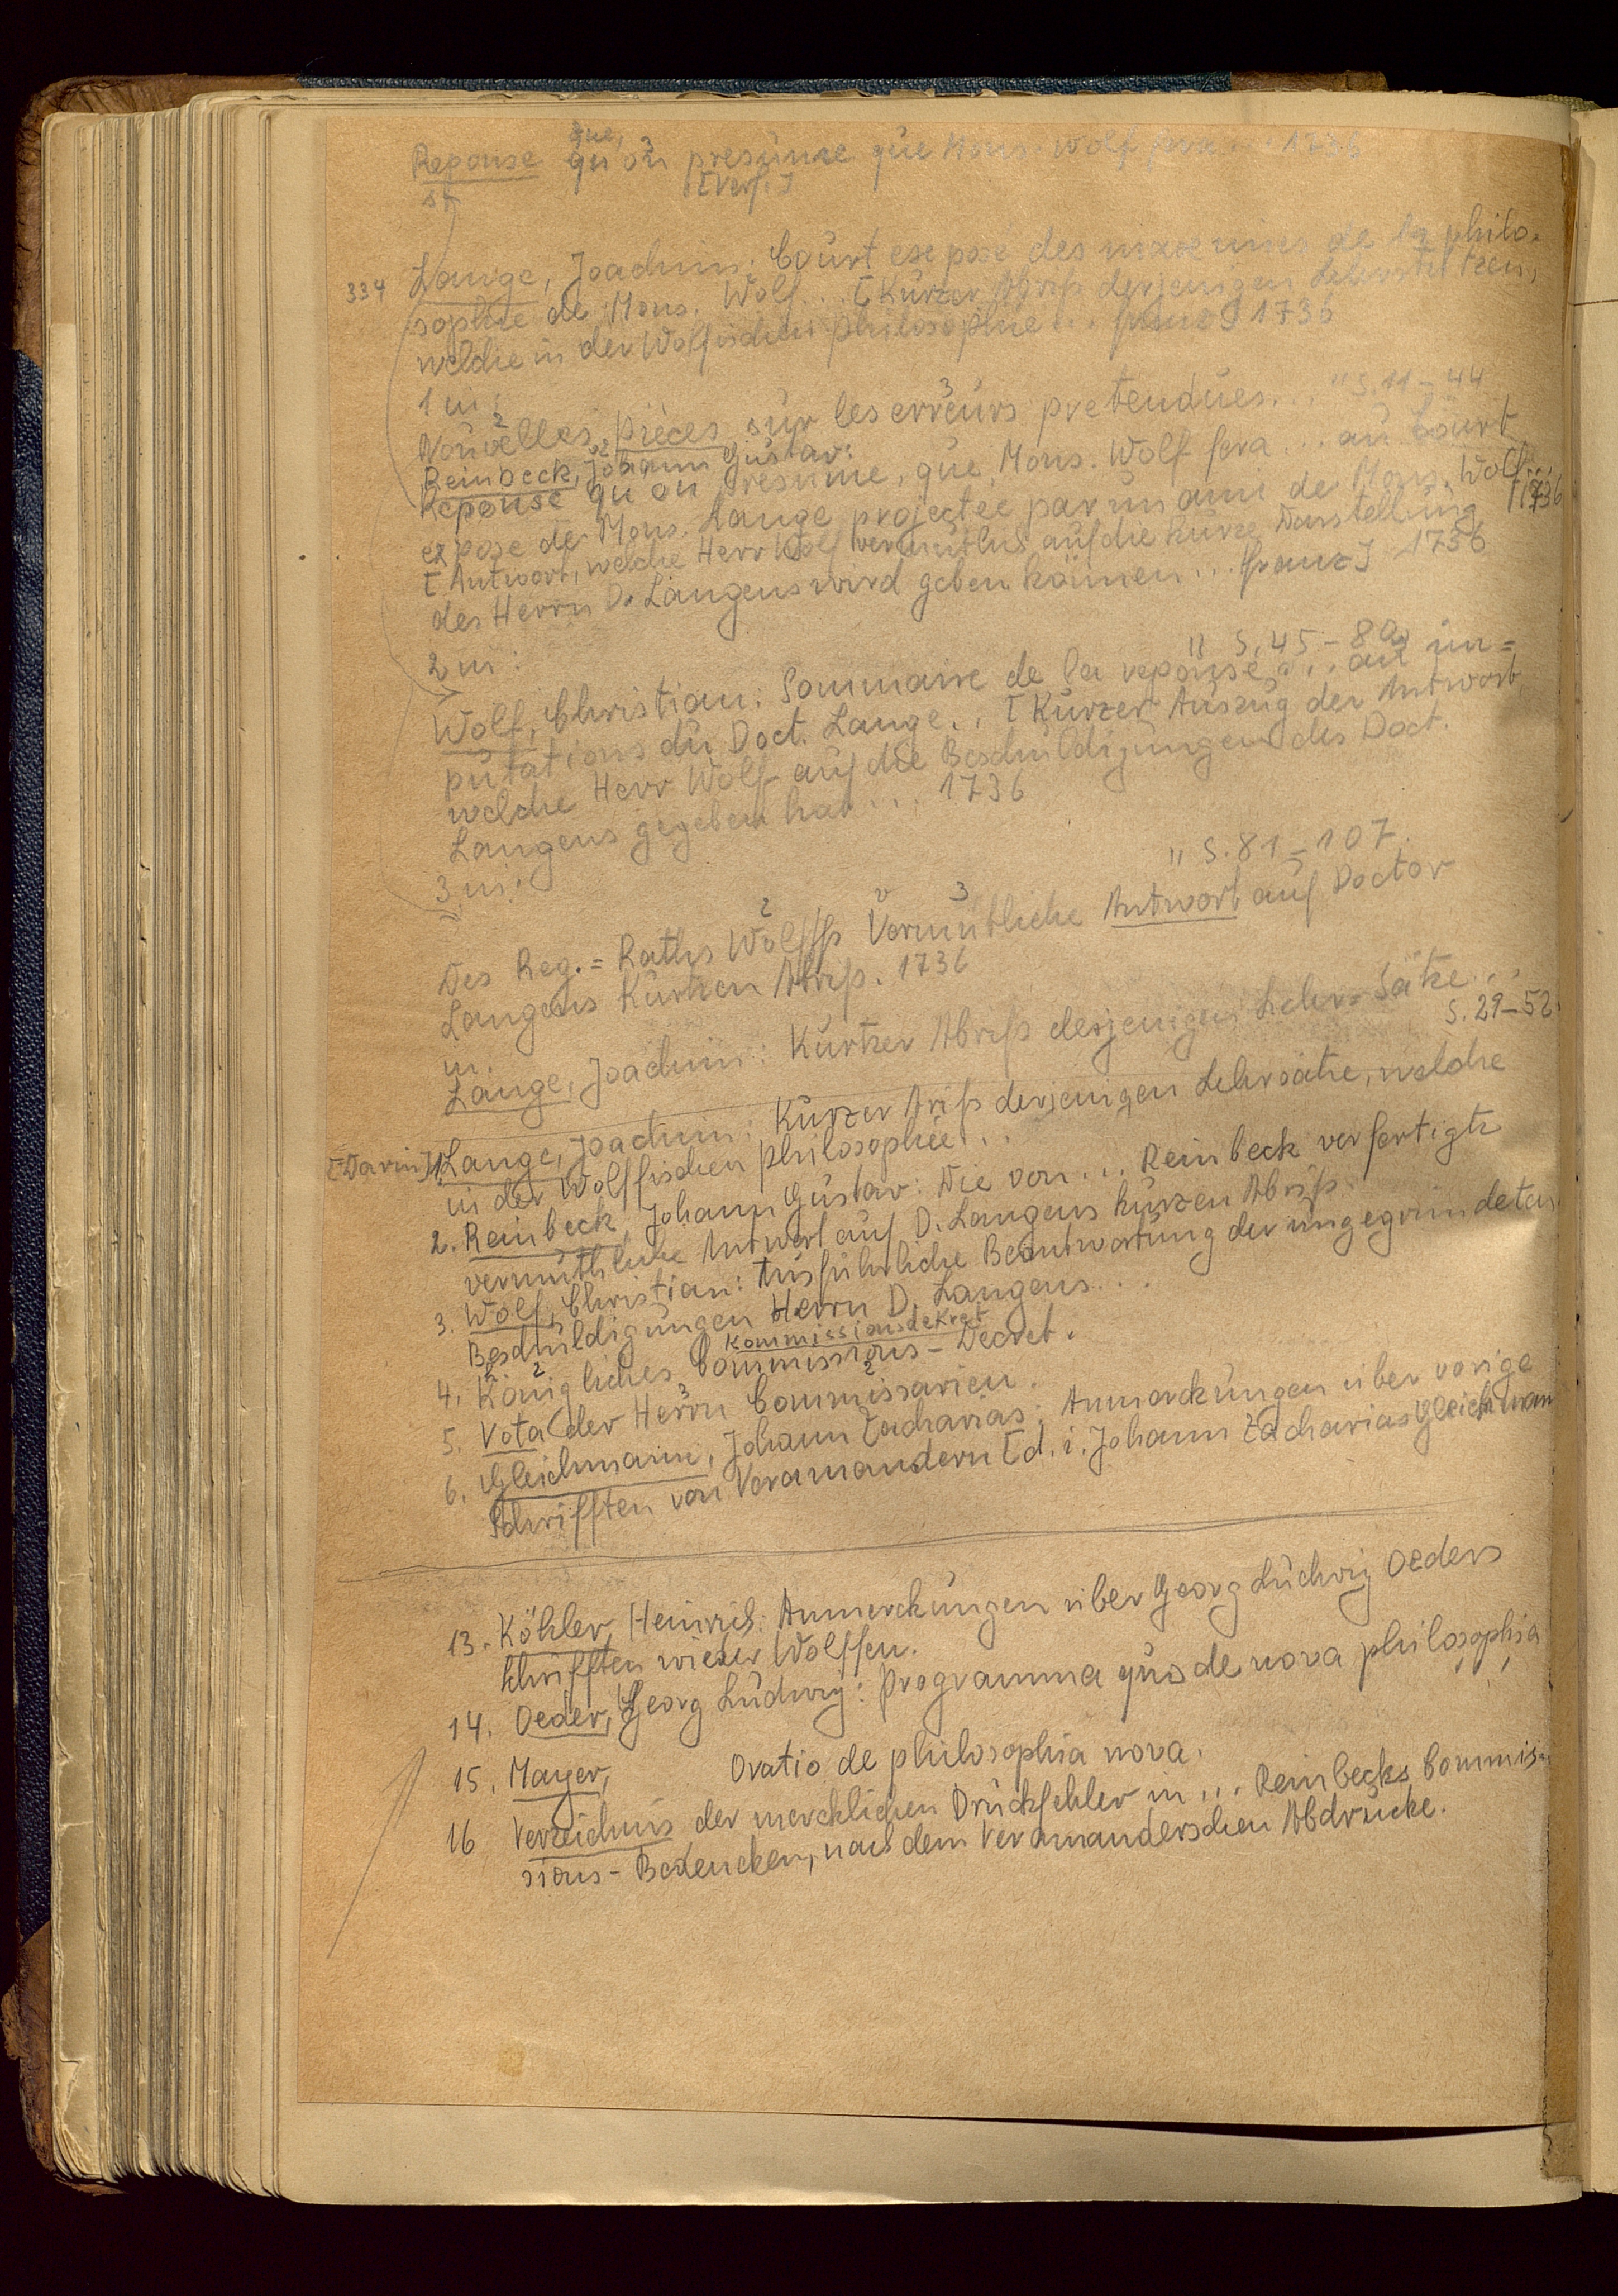 que,
Reponse qu'on presume que Mons. Wolf fera ... 1736
[Verf.]
334 Lange, Joachim: Court exposé des maximes de la philo-
sophie de Mons. Wolf... [Kurzer Abriß derjenigen Lehrsätze
welche in der Wolfischen philosophie ... franz] 1736
1 in:
Nouvelles pièces sur les erreurs pretendues... " S. 11-44
Reinbeck, Johann Gustav:
Reponse qu'on presume, que Mons. Wolf fera ... au Court
expose de Mons. Lange projectee par un ami de Mons. Wolf... 1736
[Antwort, welche Herr Wolf vermutlich auf die kurze Darstellung
des Herrn D. Langens wird geben können ... franz] 1736
2 in:
" S. 45-80
Wolf, Christian: Sommaire de la reponse ... aux im=
putations du Doct. Lange.. [Kurzer Auszug der Antwort
welche Herr Wolf auf die Beschuldigungen des Doct.
Langens gegeben hat ... 1736
3 in:
" S. 81-107.
Des Reg.=Raths Wolffs Vermuthliche Antwort auf Doctor
Langens Kurtzen Abriß. 1736
in.
Lange, Joachim: Kurtzer Abriß derjenigen Lehr=Sätze...
S. 29-52.
[Darin] 1. Lange, Joachim: Kurzer Ariß derjenigen Lehrsätze, welche
in der Wolffischen philosophie...
2. Reinbeck, Johann Gustav: Die von ... Reinbeck verfertigte
vermuthliche Antwort auf D. Langens kurzen Abriß.
3. Wolf, Christian: Ausführliche Beantwortung der ungegründeten
Beschuldigungen Herrn D. Langens...
Kommissionsdekret
4. Königliches Commissions-Decret.
5. Vota der Herrn Commissarien.
6. Gleichmann, Johann Zacharias: Anmerckungen über vorige
Schrifften von Veramandern [d. i. Johann Zacharias Gleichmann
13. Köhler, Heinrich: Anmerckungen über Georg Ludwig Oeders
Schrifften wieder Wolffen.
14. Oeder, Georg Ludwig: Programma quo de nova philosophia
...
15. Mayer, Oratio de philosophia nova.
16 Verzeichnis der mercklichen Druckfehler in ... Reinbecks Commis-
sions-Bedencken, nach dem Veramanderschen Abdrucke.